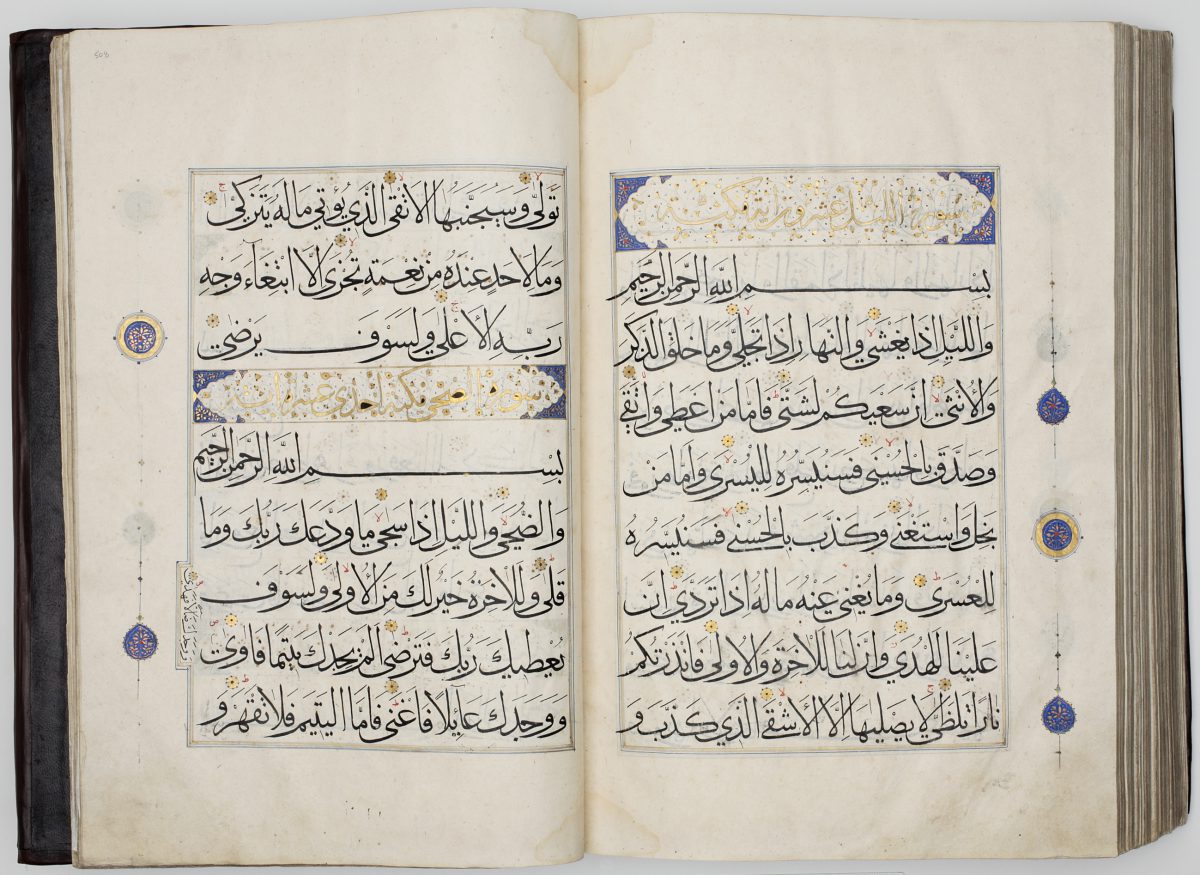 سورة الليل عشرون اية مكية
بِسْمِ اللهِ الرَّحْمٰنِ الرَّحِيْمِ
وَاللَّيْلِ اِذَا يَغْشٰى وَالنَّهَارِ اِذَا تَجَلّٰى وَمَا خَلَقَ الذَّكَرَ
وَالْاُنْثٰى اِنَّ سَعْيَكُمْ لَشَتّٰى فَاَمَّا مَنْ اَعْطٰى وَاتَّقٰى
وَصَدَّقَ بِالْحُسْنٰى فَسَنُيَسِّرُهُ لِلْيُسْرٰى وَاَمَّا مَنْ
بَخِلَ وَاسْتَغْنٰى وَكَذَّبَ بِالْحُسْنٰى فَسَنُيَسِّرُهُ
لِلْعُسْرٰى وَمَا يُغْنِي عَنْهُ مَالُهُ اِذَا تَرَدّٰى اِنَّ
عَلَيْنَا لَلْهُدٰى وَاِنَّ لَنَا لَلْاٰخِرَةَ وَالْاُولٰى فَاَنْذَرْتُكُمْ
نَارًا تَلَظّٰى لَا يَصْلَيهَا اِلَّا الْاَشْقَى الَّذِي كَذَّبَ وَ
508
تَوَلّٰى وَسَيُجَنَّبُهَا الْاَتْقَى الَّذِي يُؤْتِي مَالَهُ يَتَزَكّٰى
وَمَا لِاَحَدٍ عِنْدَهُ مِنْ نِعْمَةٍ تُجْزٰى اِلَّا ابْتِغَاءَ وَجْهِ
رَبِّهِ الْاَعْلٰى وَلَسَوْفَ يَرْضٰى
سورة الضحى مكية احدى عشر اية
بِسْمِ اللهِ الرَّحْمٰنِ الرَّحِيْمِ
وَالضُّحٰى وَاللَّيْلِ اِذَا سَجٰى مَا وَدَّعَكَ رَبُّكَ وَمَا
قَلٰى وَلَلْاٰخِرَةُ خَيْرٌ لَكَ مِنَ الْاُولٰى وَلَسَوْفَ
يُعْطِيكَ رَبُّكَ فَتَرْضٰى اَلَمْ يَجِدْكَ يَتِيمًا فَاٰوٰى
وَوَجَدَكَ ضَالًّا فَهَدٰى
وَوَجَدَكَ عَائِلًا فَاَغْنٰى فَاَمَّا الْيَتِيمَ فَلَا تَقْهَرْ وَ